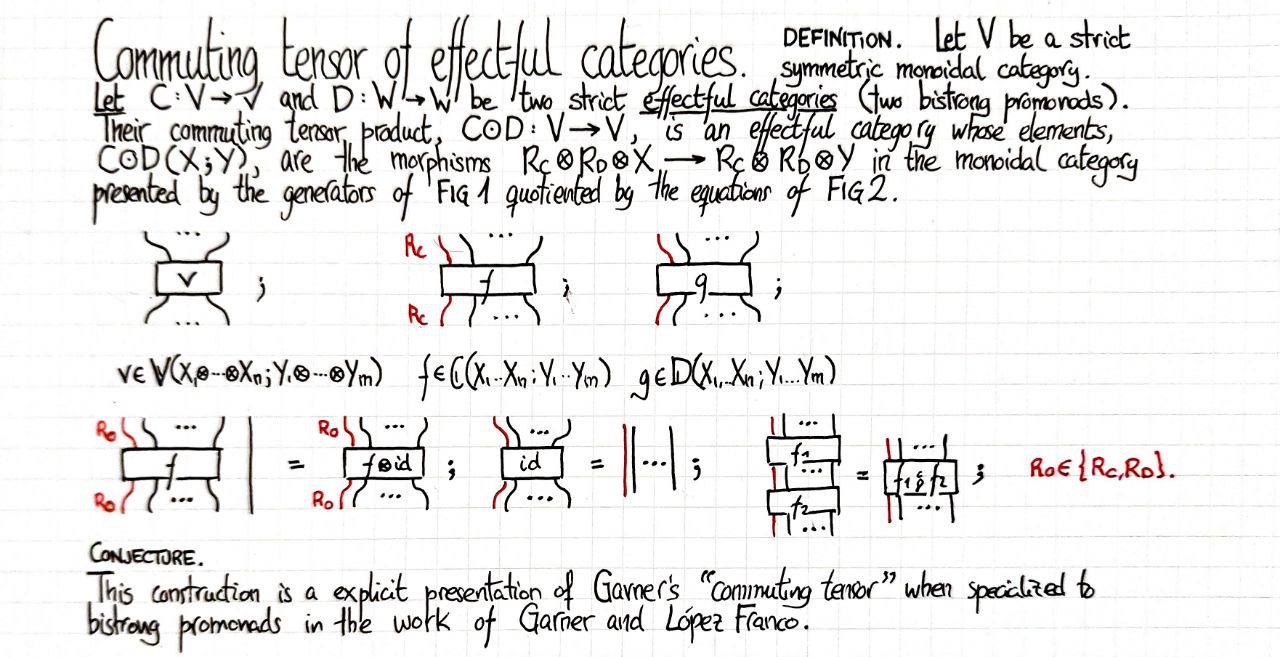 Commuting tensor of effectful categories.
DEFINITION. Let V be a strict
symmetric monoidal category.
Let C:V→V and D:W→W be two strict effectful categories (two bistrong promonads).
Their commuting tensor product, C⊙D:V→V, is an effectful category whose elements,
C⊙D(X;Y), are the morphisms R_C⊗R_D⊗X → R_C⊗R_D⊗Y in the monoidal category
presented by the generators of FIG 1 quotiented by the equations of FIG 2.
... v ... ;
R_C ... f R_C ... ;
... g ... ;
v∈V(X₁⊗···⊗Xₙ;Y₁⊗···⊗Yₘ) f∈C(X₁...Xₙ;Y₁...Yₘ) g∈D(X₁,...Xₙ;Y₁...Yₘ)
R₀ ... f R₀ ... = R₀ ... f⊗id R₀ ... ;
... id ... = ... ;
... f₁ ... f₂ ... = ... f₁⨾f₂ ... ;
R₀∈{R_C,R_D}.
CONJECTURE.
This construction is a explicit presentation of Garner's "commuting tensor" when specialized to
bistrong promonads in the work of Garner and López Franco.